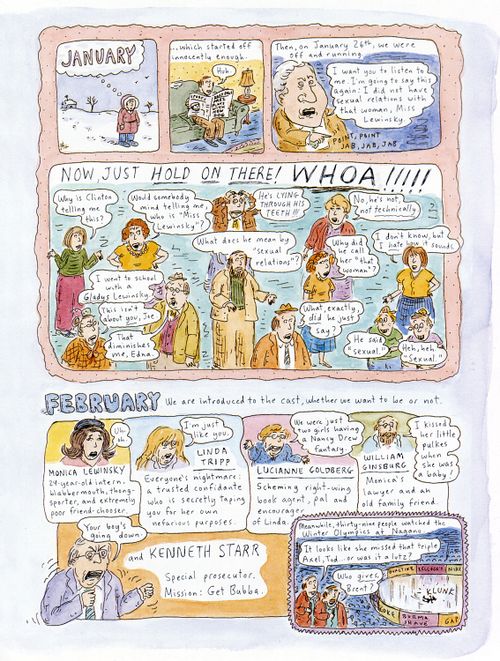 JANUARY
...which started off
innocently enough.
Huh.
Then, on January 26th, we were
off and running.
I want you to listen to
me. I'm going to say this
again: I did not have
sexual relations with
that woman, Miss
Lewinsky.
POINT, POINT
JAB, JAB, JAB
NOW, JUST HOLD ON THERE! WHOA!!!!!
Why is Clinton
telling me
this?
Would somebody
mind telling me,
who is "Miss
Lewinsky"?
He's LYING
THROUGH HIS
TEETH!!!
No, he's not,
not technically.
What does he mean by
"sexual
relations"?
Why did
he call
her "that
woman"?
I don't know, but
I hate how it sounds.
I went to school
with a
Gladys Lewinsky.
This isn't
about you, Joe.
That
diminishes
me, Edna.
What, exactly,
did he just
say?
He said
"sexual."
Heh, heh.
"Sexual."
FEBRUARY We are introduced to the cast, whether we want to be or not.
Uh
oh
MONICA LEWINSKY
24-year-old intern,
blabbermouth, thong-
sporter, and extremely
poor friend-chooser.
I'm just
like you.
LINDA
TRIPP
Everyone's nightmare:
a trusted confidante
who is secretly taping
you for her own
nefarious purposes.
We were just
two girls having
a Nancy Drew
fantasy.
LUCIANNE GOLDBERG
Scheming right-wing
book agent, pal and
encourager
of Linda.
I kissed
her little
pulkes
when she
was a baby!
WILLIAM
GINSBURG
Monica's
lawyer and an
old family friend.
Your boy's
going down.
and KENNETH STARR
Special prosecutor.
Mission: Get Bubba.
Meanwhile, thirty-nine people watched the
Winter Olympics at Nagano.
It looks like she missed that triple
Axel, Tod...or was it a lutz?
Who gives,
Brent?
KLUNK
NIKE
COKE
BURMA
SHAVE
GAP